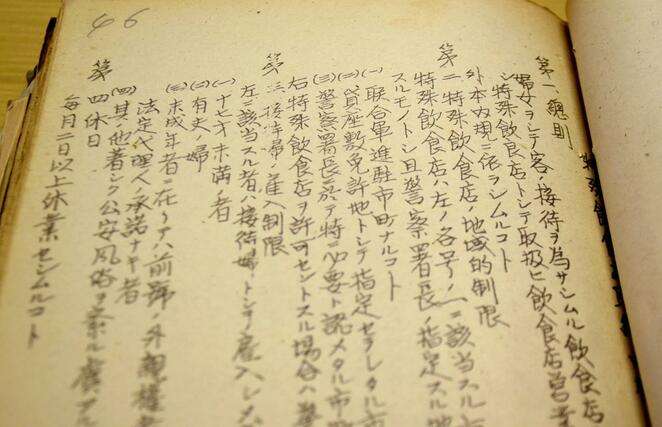 46
第一 總則
婦女ヲシテ客ノ接待ヲ為サシムル飲食店
シ特殊飲食店トシテ取扱ヒ飲食店営業
外本内規ニ依ラシムルコト
第二 特殊飲食店ノ地域的制限
特殊飲食店ハ左ノ各号ノ一ニ該当スル
スルモノトシ且警察署長ノ指定スル地
(一) 聯合軍進駐市町ナルコト
(二) 貸座敷免許地トシテ指定セラレタル市
(三) 警察署長ニ於テ特ニ必要ト認メタル市町
右特殊飲食店ヲ許可セントスル場合ハ
第三 接待婦ノ雇入制限
左ニ該当スル者ハ接待婦トシテ雇入レ
(一) 十七才未満ノ者
(二) 有夫ノ婦
(三) 未成年者ニ在リテハ前號ノ外親権者
法定代理人ノ承諾ナキ者
(四) 其ノ他著シク公安風俗ヲ紊ル虞アル
第四 休日
毎月二日以上休業セシムルコト